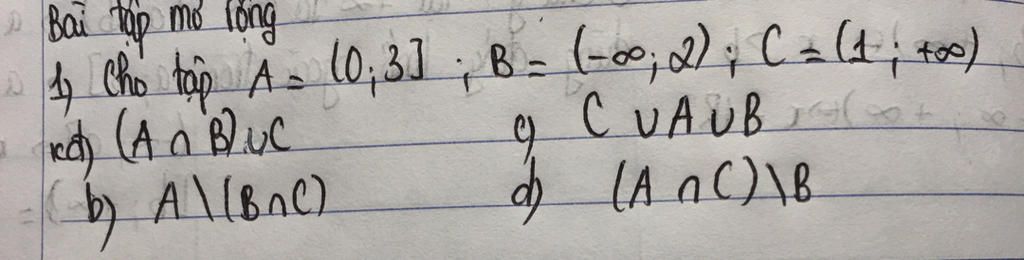 Bài tập mở rộng
1) Cho tập A = (0; 3] ; B = (-∞; 2) ; C = (1; +∞)
a) (A ∩ B) ∪ C c) C ∪ A ∪ B
b) A \ (B ∩ C) d) (A ∩ C) \ B